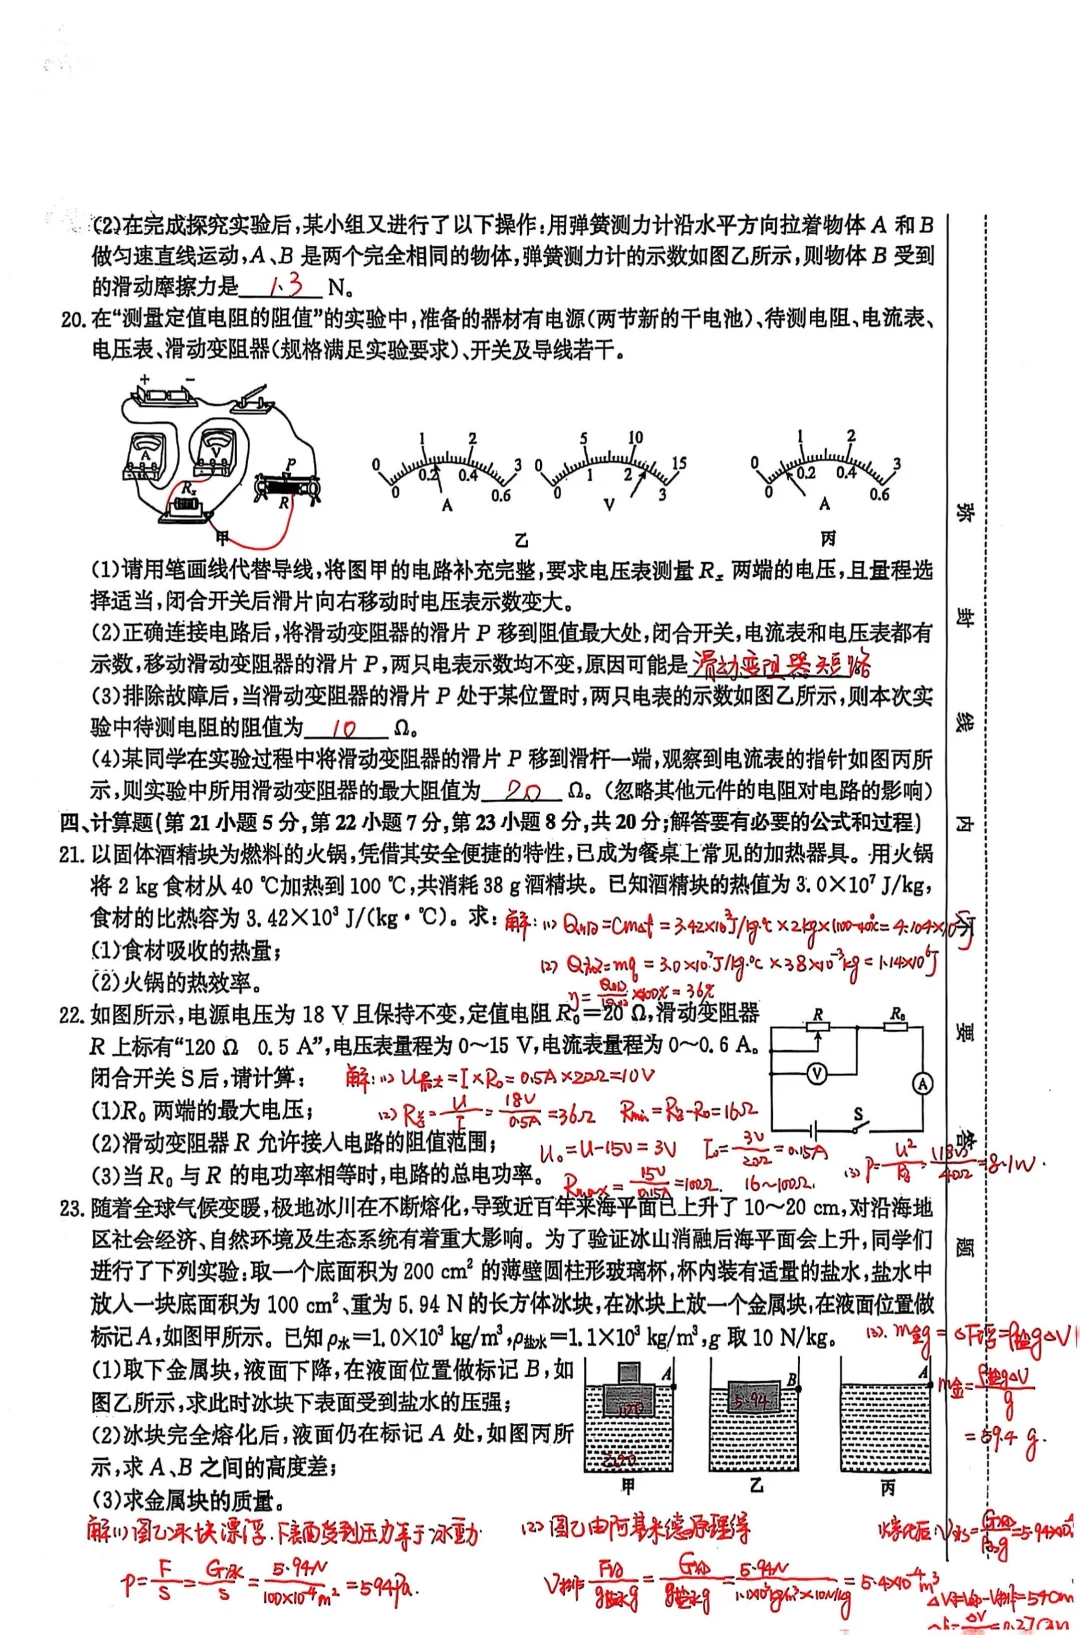 (2)在完成探究实验后,某小组又进行了以下操作:用弹簧测力计沿水平方向拉着物体 A 和 B
做匀速直线运动,A、B 是两个完全相同的物体,弹簧测力计的示数如图乙所示,则物体 B 受到
的滑动摩擦力是 1.3 N。
20. 在“测量定值电阻的阻值”的实验中,准备的器材有电源(两节新的干电池)、待测电阻、电流表、
电压表、滑动变阻器(规格满足实验要求)、开关及导线若干。
+ −
A V P Rx R
甲
0 1 2 3 0 0.2 0.4 0.6 A
0 5 10 15 0 1 2 3 V
乙
0 1 2 3 0 0.2 0.4 0.6 A
丙
(1)请用笔画线代替导线,将图甲的电路补充完整,要求电压表测量 Rx 两端的电压,且量程选
择适当,闭合开关后滑片向右移动时电压表示数变大。
(2)正确连接电路后,将滑动变阻器的滑片 P 移到阻值最大处,闭合开关,电流表和电压表都有
示数,移动滑动变阻器的滑片 P,两只电表示数均不变,原因可能是 滑动变阻器短路
(3)排除故障后,当滑动变阻器的滑片 P 处于某位置时,两只电表的示数如图乙所示,则本次实
验中待测电阻的阻值为 10 Ω。
(4)某同学在实验过程中将滑动变阻器的滑片 P 移到滑杆一端,观察到电流表的指针如图丙所
示,则实验中所用滑动变阻器的最大阻值为 20 Ω。(忽略其他元件的电阻对电路的影响)
四、计算题(第 21 小题 5 分,第 22 小题 7 分,第 23 小题 8 分,共 20 分;解答要有必要的公式和过程)
21. 以固体酒精块为燃料的火锅,凭借其安全便捷的特性,已成为餐桌上常见的加热器具。用火锅
将 2 kg 食材从 40 ℃加热到 100 ℃,共消耗 38 g 酒精块。已知酒精块的热值为 3.0×10⁷ J/kg,
食材的比热容为 3.42×10³ J/(kg·℃)。求:
解:(1) Q吸=CmΔt=3.42×10³J/kg·℃×2kg×(100-40)℃=4.104×10⁵J
(1)食材吸收的热量;
(2) Q放=mq=3.0×10⁷J/kg·℃×38×10⁻³kg=1.14×10⁶J
(2)火锅的热效率。
×100%=36%
22. 如图所示,电源电压为 18 V 且保持不变,定值电阻 R₀=20 Ω,滑动变阻器
R 上标有“120 Ω 0.5 A”,电压表量程为 0～15 V,电流表量程为 0～0.6 A。
闭合开关 S 后,请计算:
解:(1) U最大=I×R₀=0.5A×20Ω=10V
(1)R₀ 两端的最大电压;
(2) R总=U/I=18V/0.5A=36Ω Rmin=R总-R₀=16Ω
(2)滑动变阻器 R 允许接入电路的阻值范围;
U₀=U-15V=3V I₀=3V/20Ω=0.15A
(3)当 R₀ 与 R 的电功率相等时,电路的总电功率。
Rmax=15V/0.15A=100Ω. 16~100Ω.
=8.1W.
R R₀ V A S
23. 随着全球气候变暖,极地冰川在不断熔化,导致近百年来海平面已上升了 10～20 cm,对沿海地
区社会经济、自然环境及生态系统有着重大影响。为了验证冰山消融后海平面会上升,同学们
进行了下列实验:取一个底面积为 200 cm² 的薄壁圆柱形玻璃杯,杯内装有适量的盐水,盐水中
放入一块底面积为 100 cm²、重为 5.94 N 的长方体冰块,在冰块上放一个金属块,在液面位置做
标记 A,如图甲所示。已知 ρ水=1.0×10³ kg/m³,ρ盐水=1.1×10³ kg/m³,g 取 10 N/kg。
(1)取下金属块,液面下降,在液面位置做标记 B,如
图乙所示,求此时冰块下表面受到盐水的压强;
(2)冰块完全熔化后,液面仍在标记 A 处,如图丙所
示,求 A、B 之间的高度差;
(3)求金属块的质量。
A B A
5.94
甲 乙 丙
(3). m金g=ΔF浮=ρ盐gΔV
m金=ρ盐gΔV/g
=59.4 g.
解(1)图乙冰块漂浮.下表面受到压力等于冰重力
P=F/S=G冰/S=5.94N/100×10⁻⁴m²=594Pa.
(2)图乙由阿基米德原理得
5.94N
=5.4×10⁻⁴m³
熔化后:
弥
封
线
内
不
要
答
题